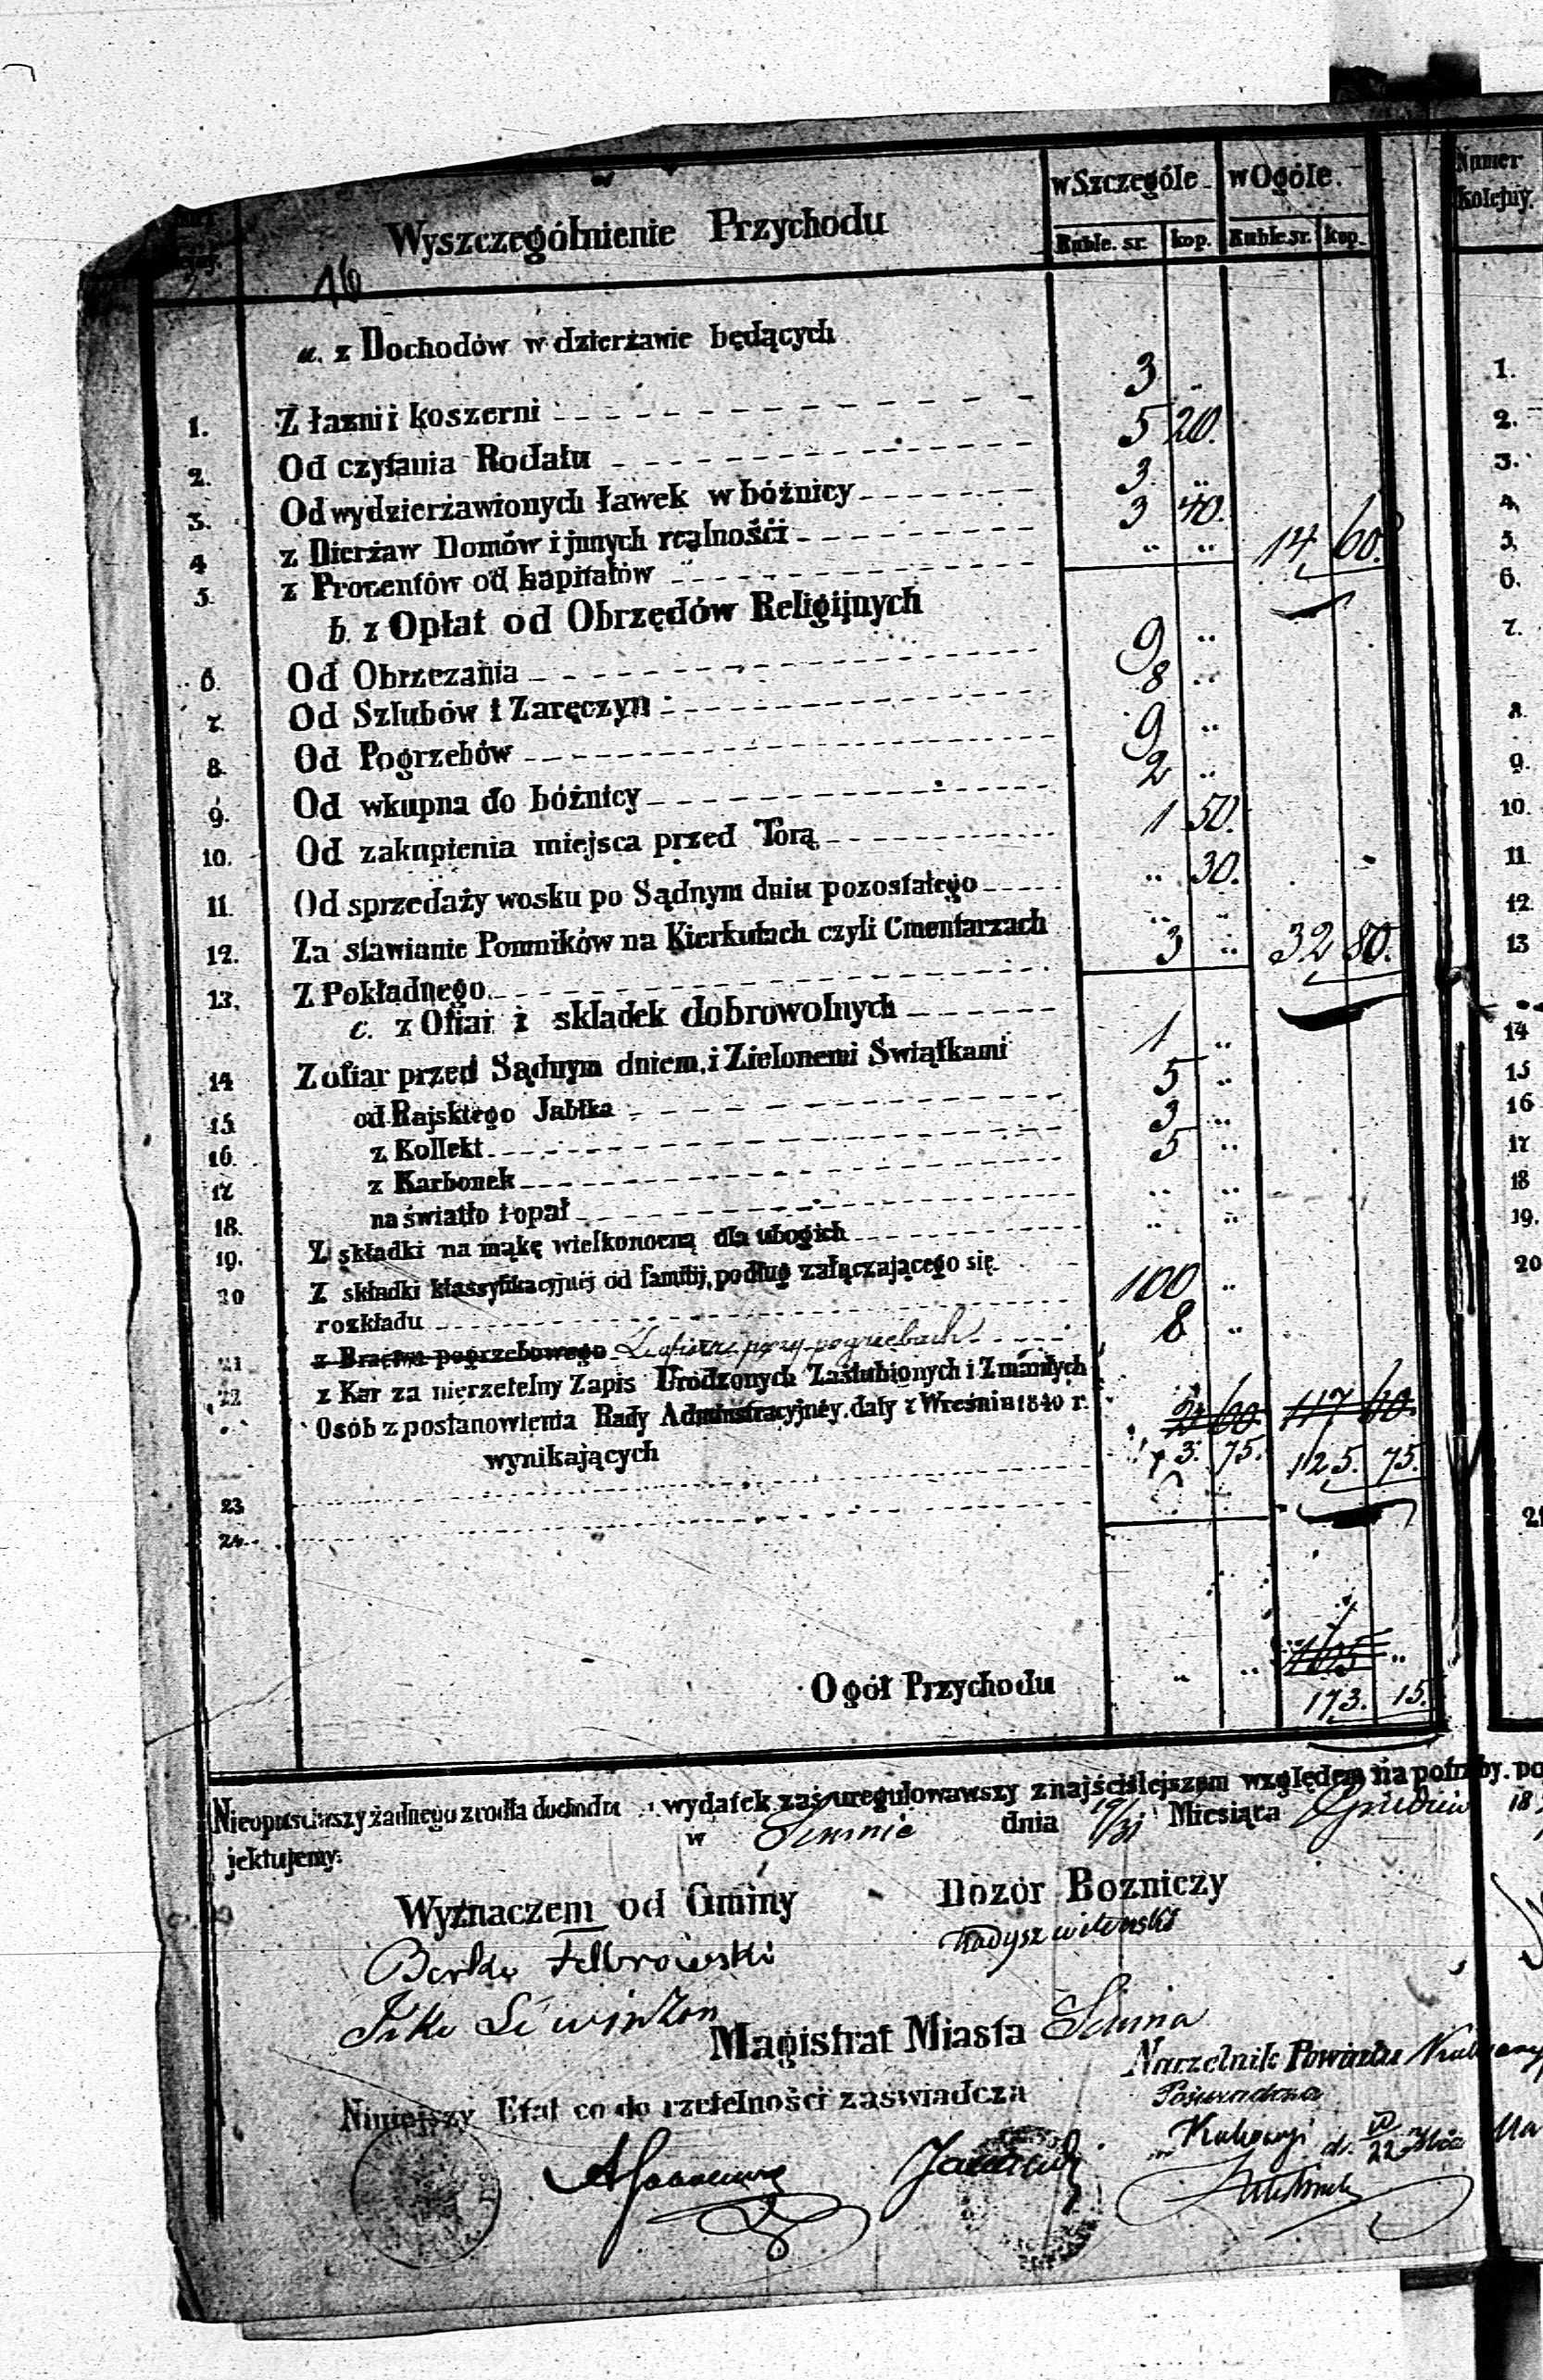 Numer
Kolejny.
w Szczególe. w Ogóle.
Wyszczególnienie Przychodu
Ruble. sr. kop. Ruble. sr. kop.
16
a. z Dochodów w dzierżawie będących
1. Z łazni i koszerni 3 ..
2. Od czytania Rodału 5 20.
3. Od wydzierżawionych ławek w bóżnicy 3. ..
4 z Dierżaw Domów i jnnych realnośći 3 40.
5. z Procentów od kapitałów .. .. 14 60.
b. z Opłat od Obrzędów Religijnych
6. Od Obrzezania 9 ..
7. Od Szlubów i Zaręczyn 8 ..
8. Od Pogrzebów 9 ..
9. Od wkupna do bóżnicy 2 ..
10. Od zakupienia miejsca przed Torą 1 50.
11. Od sprzedaży wosku po Sądnym dniu pozostałego .. 30.
12. Za stawianie Pomników na Kierkutach czyli Cmentarzach .. ..
13. Z Pokładnego 3 .. 32 80.
c. z Ofiar i składek dobrowolnych
14 Z ofiar przed Sądnym dniem, i Zielonemi Swiątkami 1 ..
15 od Rajskiego Jabłka 5 ..
16. z Kollekt 3 ..
17 z Karbonek 5 ..
18. na światło i opał .. ..
19. Z składki na mąkę wielkonocną dla ubogich .. ..
20 Z składki klassyfikacyjnéj od familij, podług załączającego się
rozkładu 100 ..
21 z Bractwa pogrzebowego Z ofiar przy pogrzebach 8 ..
22 z Kar za nierzetelny Zapis Urodzonych Zaślubionych i Zmarłych
Osób z postanowienia Rady Administracyjnéy. daty Wrešnia 1840 r. 60 117 60.
wynikających 3. 75. 125. 75.
23
24
Ogół Przychodu .. .. 165 ..
173. 15.
Nieopusciwszy żadnego zrodła dochodu wydatek zaś uregulowawszy z najściślejszem względem na potrzeby. po
jektujemy. w Simnie dnia 19/31 Miesiąca Grudnia 18
Wyznaczem od Gminy Dozór Bozniczy
Berko
Magistrat Miasta Simna
Naczelnik Powiatu
Niniejszy Etat co do rzetelności zaświadcza
Poświadcza
Kalwaryi d. 22
1.
2.
3.
4.
5.
6.
7.
8.
9.
10.
11
12.
13
14
15
16
17
18
19.
20